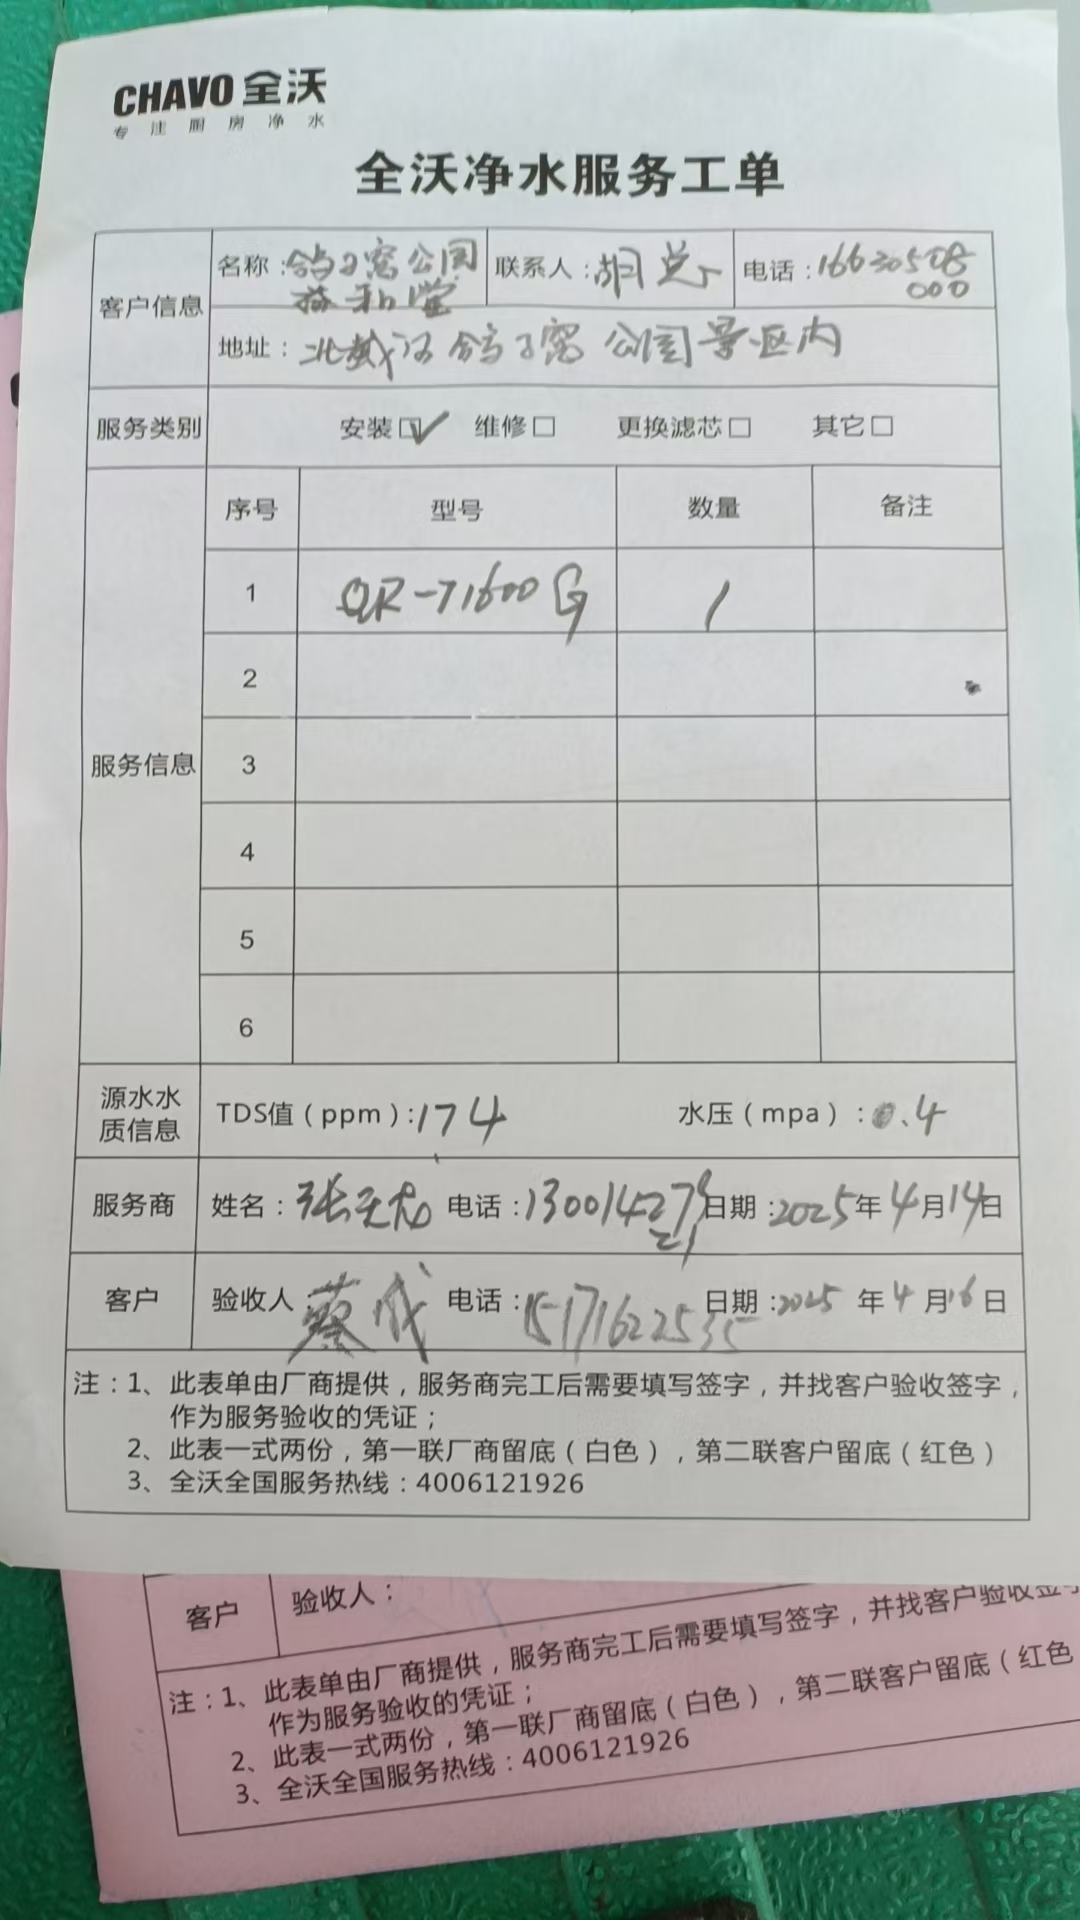 CHAVO 全沃
专注厨房净水
全沃净水服务工单
客户信息
名称：鸽子窝公园
联系人：胡总
电话：16630508
000
地址：北戴河鸽子窝公园景区内
服务类别 安装☑ 维修□ 更换滤芯□ 其它□
服务信息
序号 型号 数量 备注
1 QR-71600G 1
2
3
4
5
6
源水水
质信息
TDS值（ppm）：174 水压（mpa）：0.4
服务商 姓名：张 电话： 日期：2025年4月14日
客户 验收人：蔡成 电话：15171622535 日期：2025年4月16日
注：1、此表单由厂商提供，服务商完工后需要填写签字，并找客户验收签字，
作为服务验收的凭证；
2、此表一式两份，第一联厂商留底（白色），第二联客户留底（红色）
3、全沃全国服务热线：4006121926
客户 验收人：
注：1、此表单由厂商提供，服务商完工后需要填写签字，并找客户验收签字
作为服务验收的凭证；
2、此表一式两份，第一联厂商留底（白色），第二联客户留底（红色
3、全沃全国服务热线：4006121926